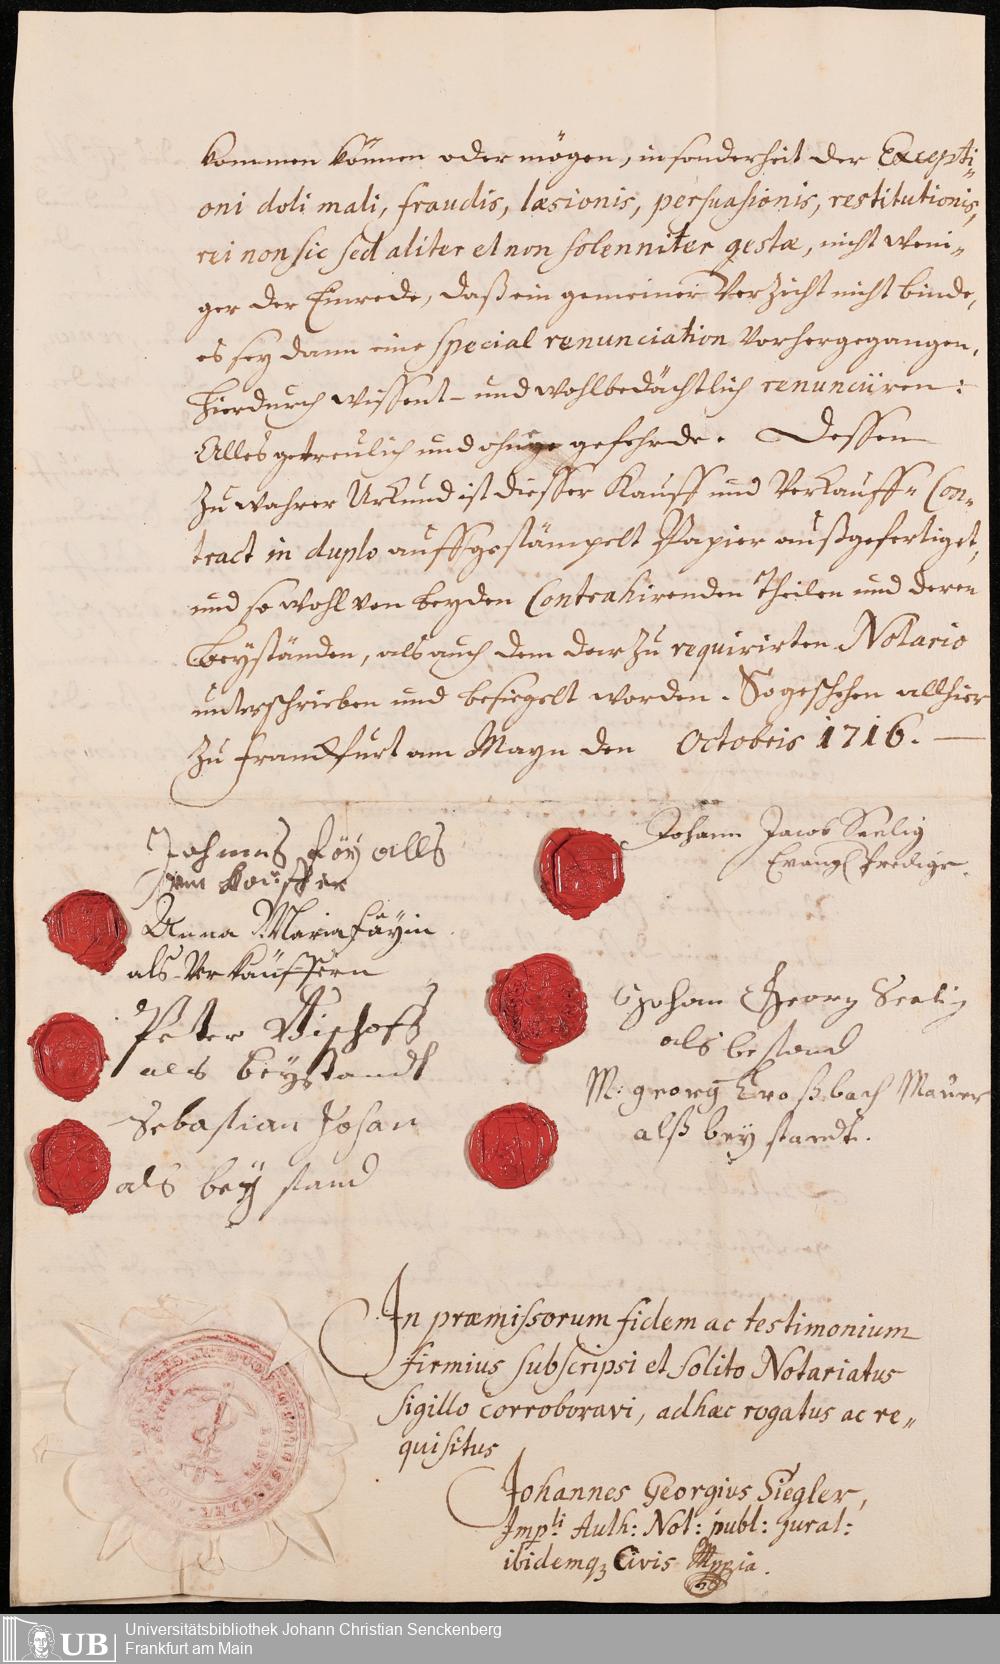 kommen können oder mögen, insonderheit der Excepti=
oni doli mali, fraudis, læsionis, persuasionis, restitutionis,
rei non sic sed aliter et non solenniter gestæ, nicht weni=
ger der Einrede, daß ein gemeiner Verzicht nicht binde,
es sey dann eine special renunciation vorhergegangen,
hierdurch wissent- und wohlbedächtlich renunciiren:
Alles getreulich und ohne gefehrde. Dessen
zu wahrer Urkund ist dießer Kauff und Verkauff= Con=
tract in duplo auff gestämpelt Papier außgefertiget,
und so wohl von beyden Contrahirenden Theilen und deren
Beyständen, als auch dem darzu requirirten Notario
unterschrieben und besiegelt worden. So geschehen allhier
zu Franckfurt am Mayn den Octobris 1716.
Johann Jacob Seelig
Evangl Prediger.
Johannes Föÿ alls
Kauffer
Anna Maria Fäyin
als Verkäufferin
Johan Georg Seelig
als bestand
Peter Bischoff
als beystandt
M: georg Kroßbach Maurer
alß bey standt.
Sebastian Johan
als beÿ stand
In præmissorum fidem ac testimonium
firmius subscripsi et solito Notariatus
sigillo corroboravi, ad hæc rogatus ac re=
quisitus
Johannes Georgius Siegler,
Imp.li Auth: Not: publ: jurat:
ibidemq; Civis Mppia.
UB
Universitätsbibliothek Johann Christian Senckenberg
Frankfurt am Main